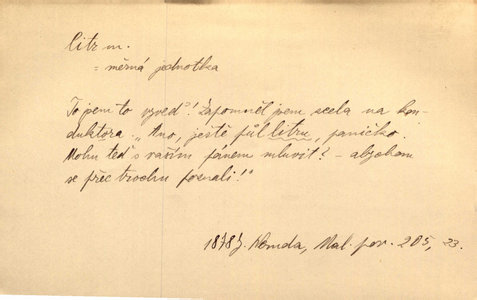 litr m.
= měrná jednotka
To jsem to vyved'! Zapomněl jsem zcela na kon-
duktéra „Ano, ještě půl litru, paničko.
Mohu teď s vaším pánem mluvit? – abychom
se přec trochu poznali!"
1878 J. Neruda, Mal. pov. 205, 23.